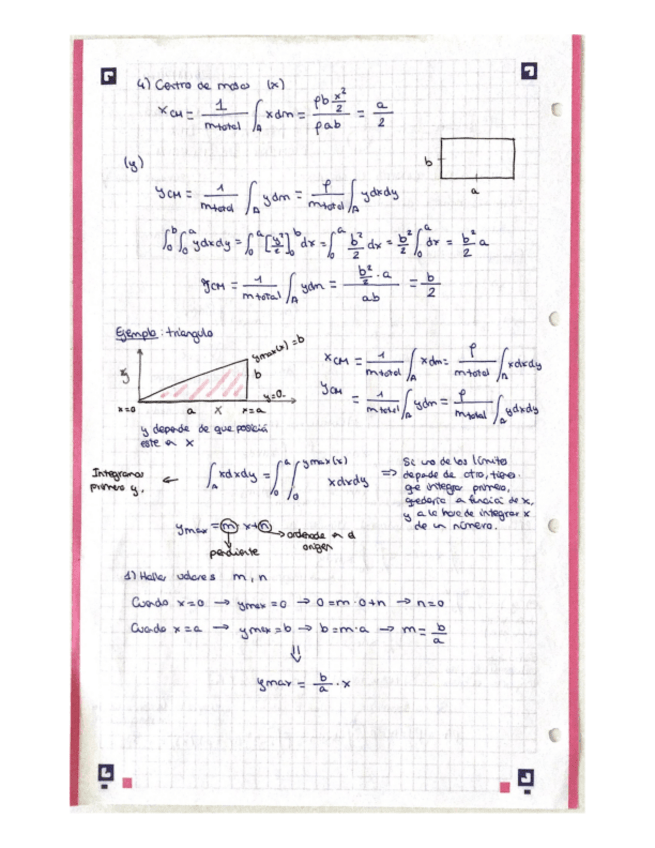 4) Centro de masas (x)
x_CM = 1/m total ∫_A x dm = ρb x²/2 / ρab = a/2
(y)
b
a
y_CM = 1/m total ∫_A y dm = ρ/m total ∫_A y dx dy
∫_0^b ∫_0^a y dx dy = ∫_0^a [y²/2]_0^b dx = ∫_0^a b²/2 dx = b²/2 ∫_0^a dx = b²/2 a
y_CM = 1/m total ∫_A y dm = b²/2 · a / ab = b/2
Ejemplo: triángulo
ymax(x) = b
y
b
y=0
x=0 a x x=a
x_CM = 1/m total ∫_A x dm = ρ/m total ∫_A x dx dy
y_CM = 1/m total ∫_A y dm = ρ/m total ∫_A y dx dy
y depende de que posición
este en x
Integramos
primero y.
← ∫_A x dx dy = ∫_0^a ∫_0^ymax(x) x dx dy ⇒
Si uno de los límites
depende de otro, tienes
que integrar primero,
quedaría en función de x,
y a la hora de integrar x
de un número.
ymax = m x + n → ordenada en el
origen
pendiente
1) Hallar valores m, n
Cuando x=0 → ymax = 0 → 0 = m · 0 + n → n = 0
Cuando x = a → ymax = b → b = m · a → m = b/a
⇓
ymax = b/a · x